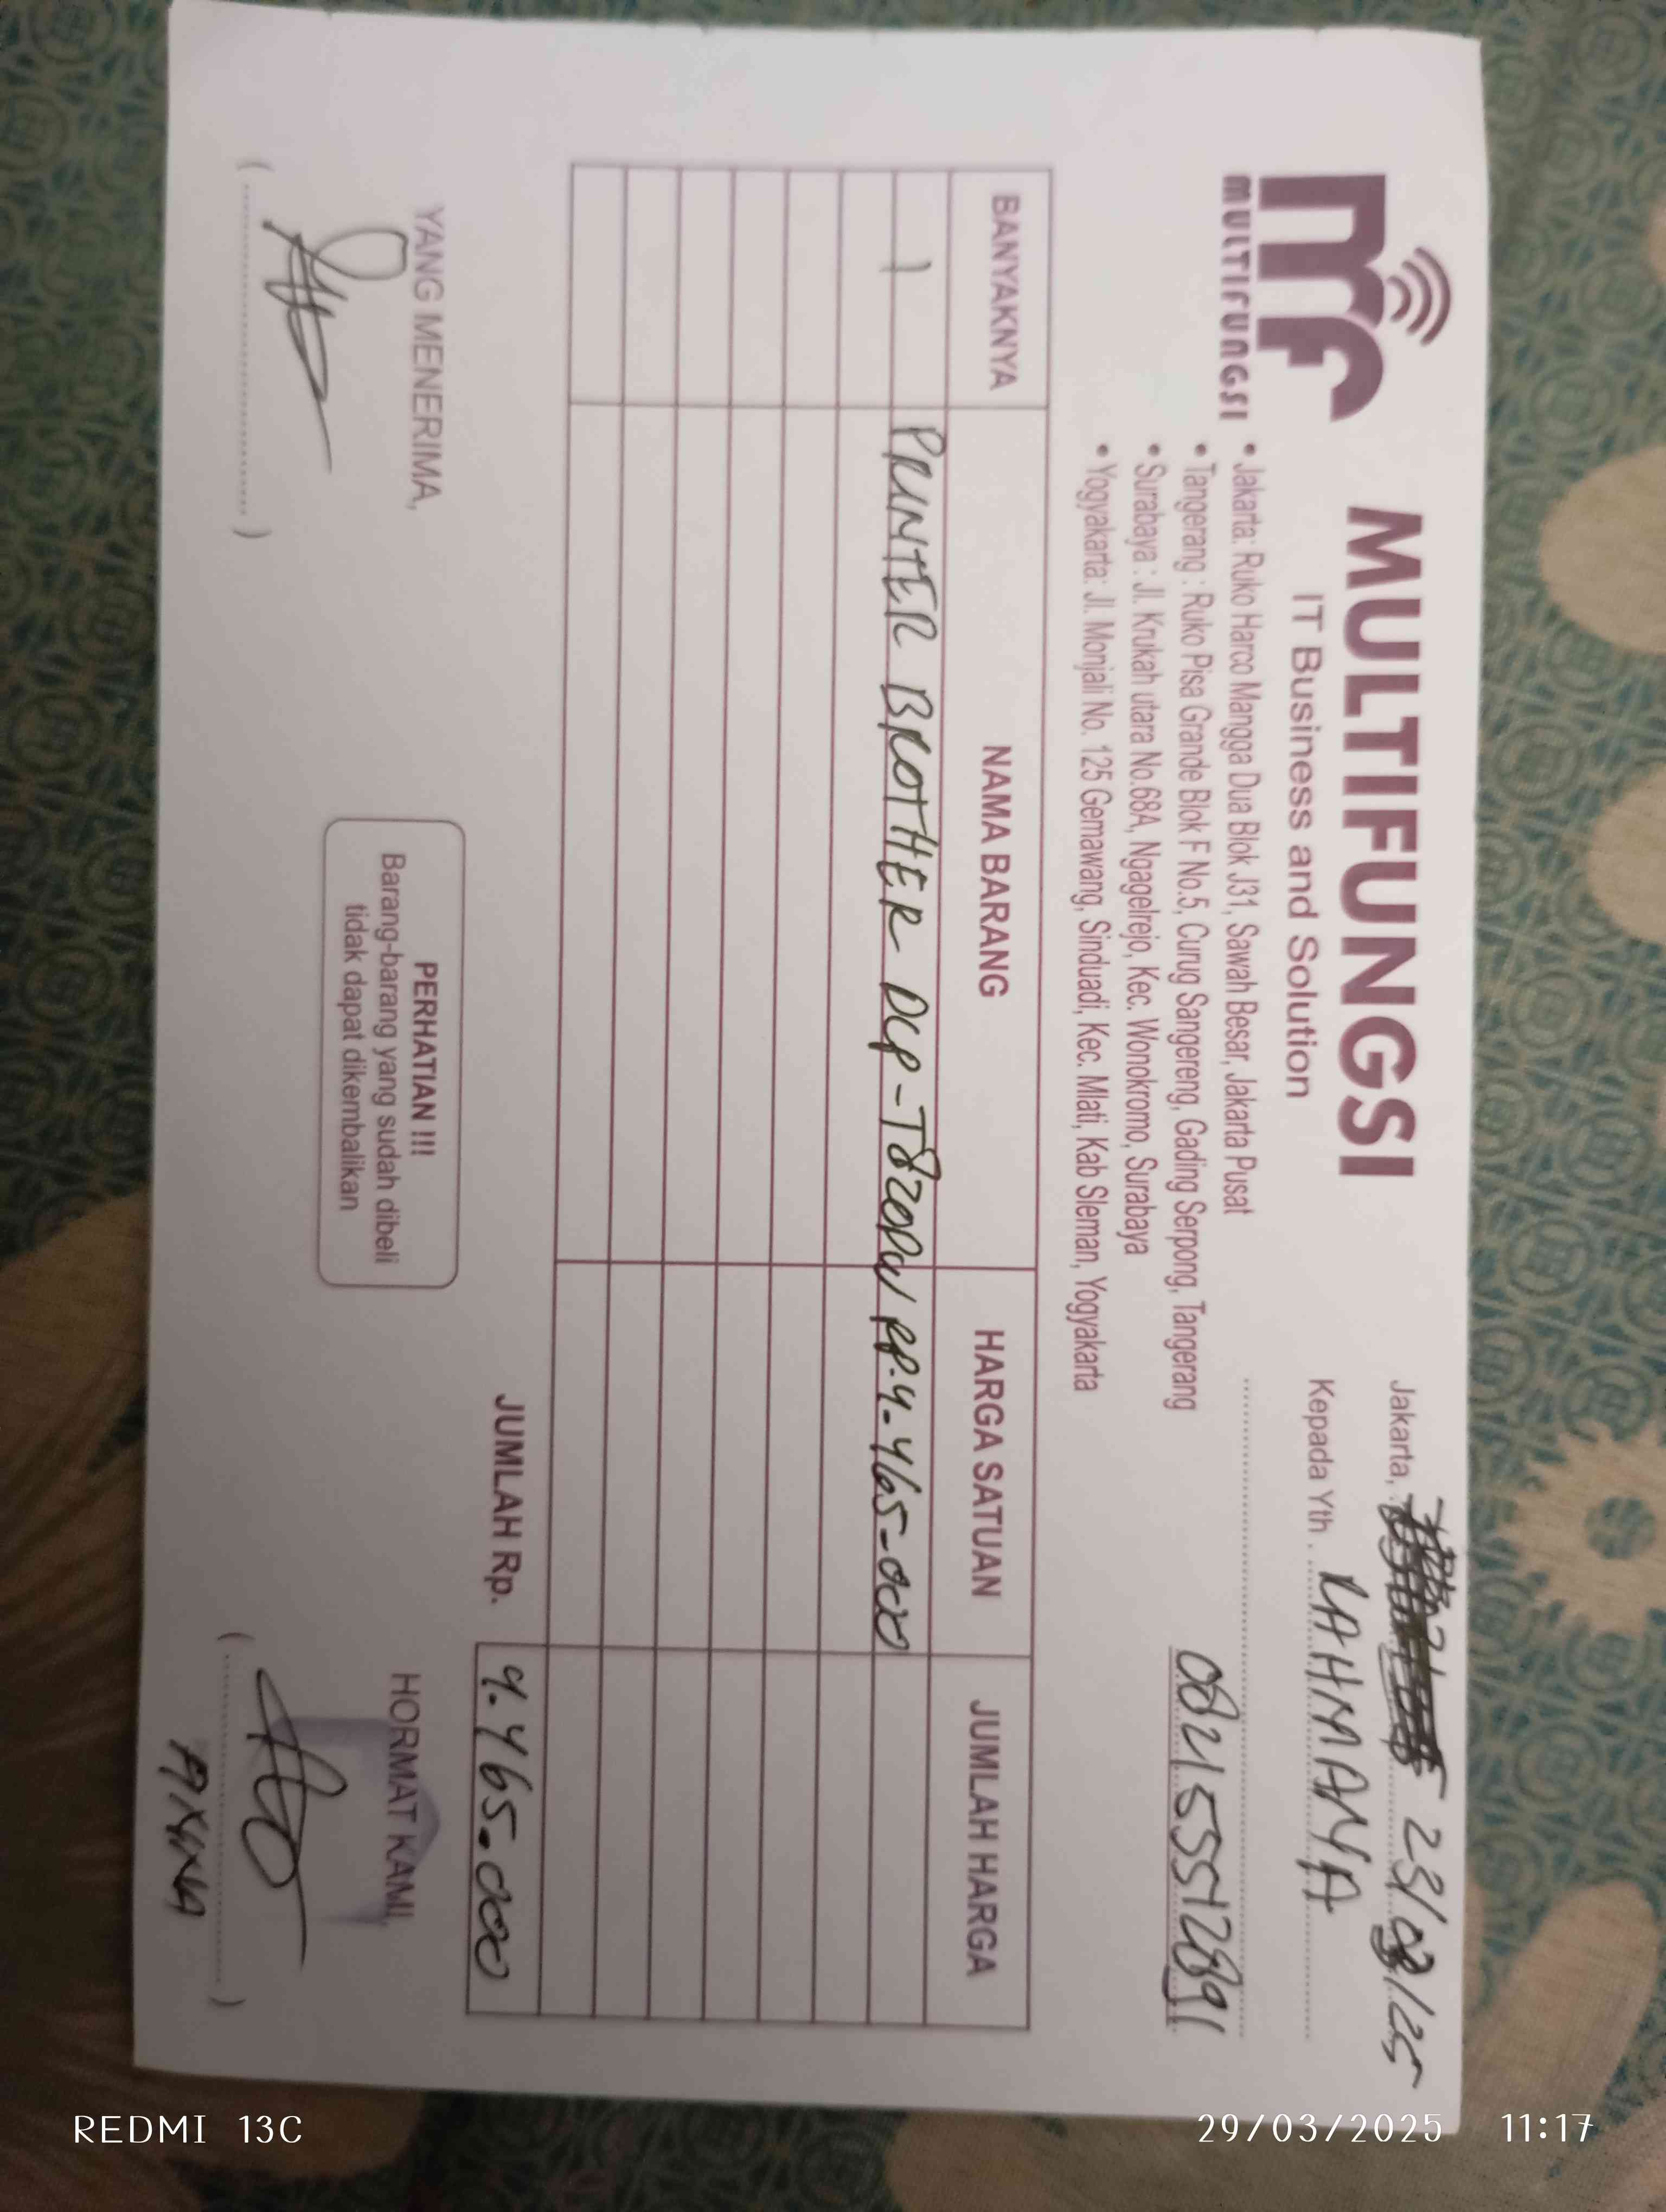 MULTIFUNGSI
MULTIFUNGSI
IT Business and Solution
• Jakarta: Ruko Harco Mangga Dua Blok J31, Sawah Besar, Jakarta Pusat
• Tangerang : Ruko Pisa Grande Blok F No.5, Curug Sangereng, Gading Serpong, Tangerang
• Surabaya : Jl. Krukah utara No.68A, Ngagelrejo, Kec. Wonokromo, Surabaya
• Yogyakarta: Jl. Monjali No. 125 Gemawang, Sinduadi, Kec. Mlati, Kab Sleman, Yogyakarta
Jakarta, 23/03/25
Kepada Yth. RAHMANYA
082155512891
BANYAKNYA NAMA BARANG HARGA SATUAN JUMLAH HARGA
1 PRINTER BROTHER DCP-T820DW RP.4.465.000
JUMLAH Rp. 4.465.000
YANG MENERIMA,
PERHATIAN !!!
Barang-barang yang sudah dibeli
tidak dapat dikembalikan
HORMAT KAMI,
REDMI 13C
29/03/2025 11:17